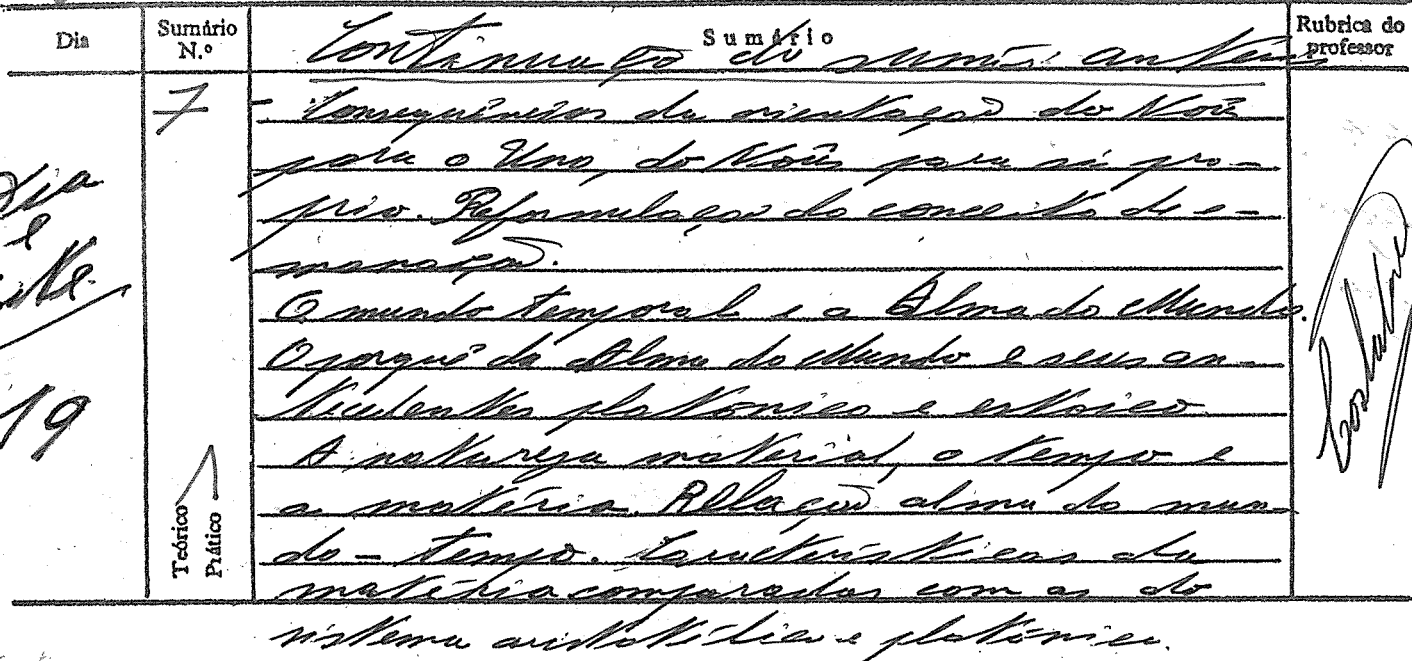 Dia
Sumário N.º
Sumário
Rubrica do professor
Continuação do sumário anterior
7
- Consequências da orientação do Noûs
para o Uno, do Noûs para si pró-
prio. Reformulação do conceito de e-
manação.
O mundo temporal e a Alma do Mundo.
O porquê da Alma do Mundo e seus an-
tecedentes platónico e estoico
A natureza material, o tempo e
a matéria. Relação alma do mun-
do - tempo. Características da
matéria comparadas com as do
sistema aristotélico e platónico.
19
Teórico
Prático